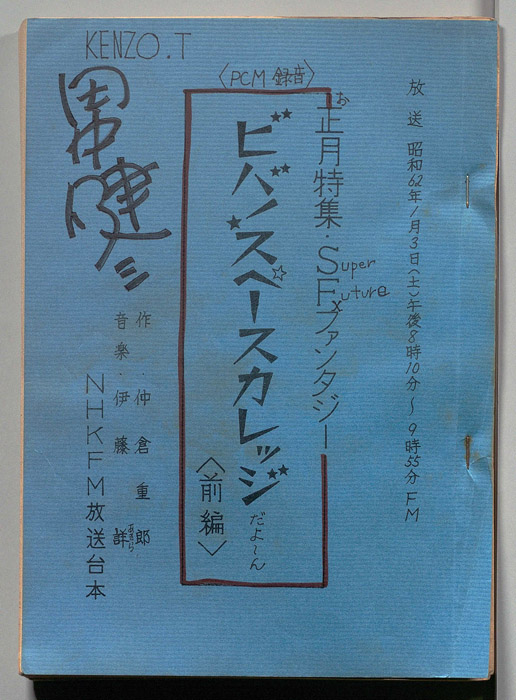 KENZO.T
〈PCM 録音〉
放送 昭和62年1月3日(土)午後8時10分～9時55分 FM
お正月特集・SFファンタジー
Super
Future
ビバ!スペースカレッジ
だよ～ん
〈前編〉
作・仲倉重郎
音楽・伊藤詳
あきら
NHKFM放送台本
田中健三